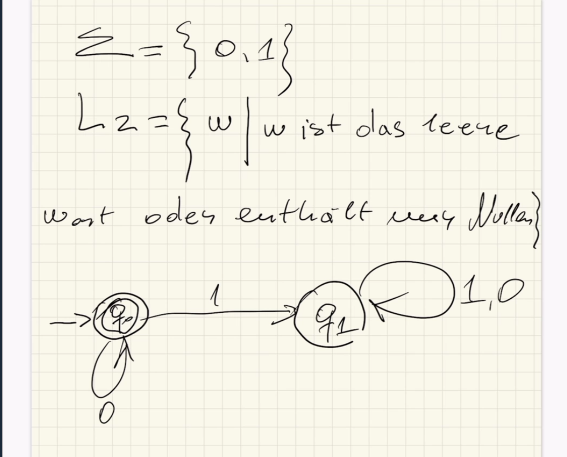 Σ = { 0,1}
L2 = { w | w ist das leere
wort oder enthält nur Nullen}
q0 1 q1 1,0
0